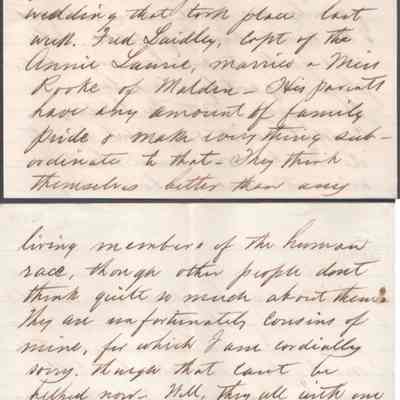 wedding that took place last
week. Fred Laidley, Capt of the
Annie Laurie, married a Miss
Rooke of Malden - His parents
have any amount of family
pride & make everything sub-
ordinate to that - They think
themselves better than any
living members of the human
race, though other people don't
think quite so much about them.
They are unfortunately cousins of
mine, for which I am cordially
sorry. though that can't be
helped now - Well, they all with one